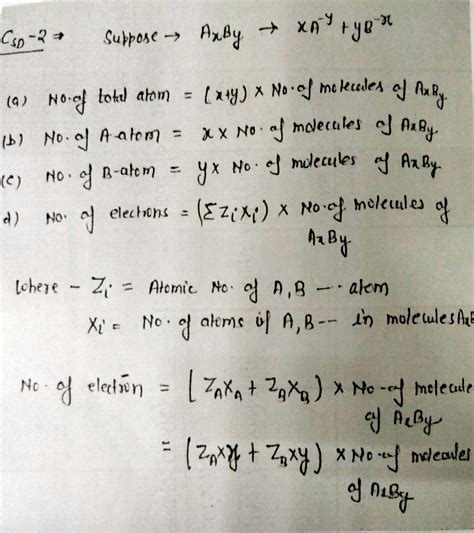 CSD-2 ⇒ Suppose → AxBy → xA⁻ʸ + yB⁻ˣ
(a) No. of total atom = (x+y) × No. of molecules of AxBy.
(b) No. of A-atom = x × No. of molecules of AxBy.
(c) No. of B-atom = y × No. of molecules of AxBy.
d) No. of electrons = (ΣZixi) × No. of molecules of
AxBy
Where - Zi = Atomic No. of A, B --. atom
Xi = No. of atoms of A, B -- in molecules AxB
No. of electron = [ZAXA + ZBXB) × No-of molecule
of AxBy
= (ZA×x + ZB×y) × No-of molecules
of AxBy